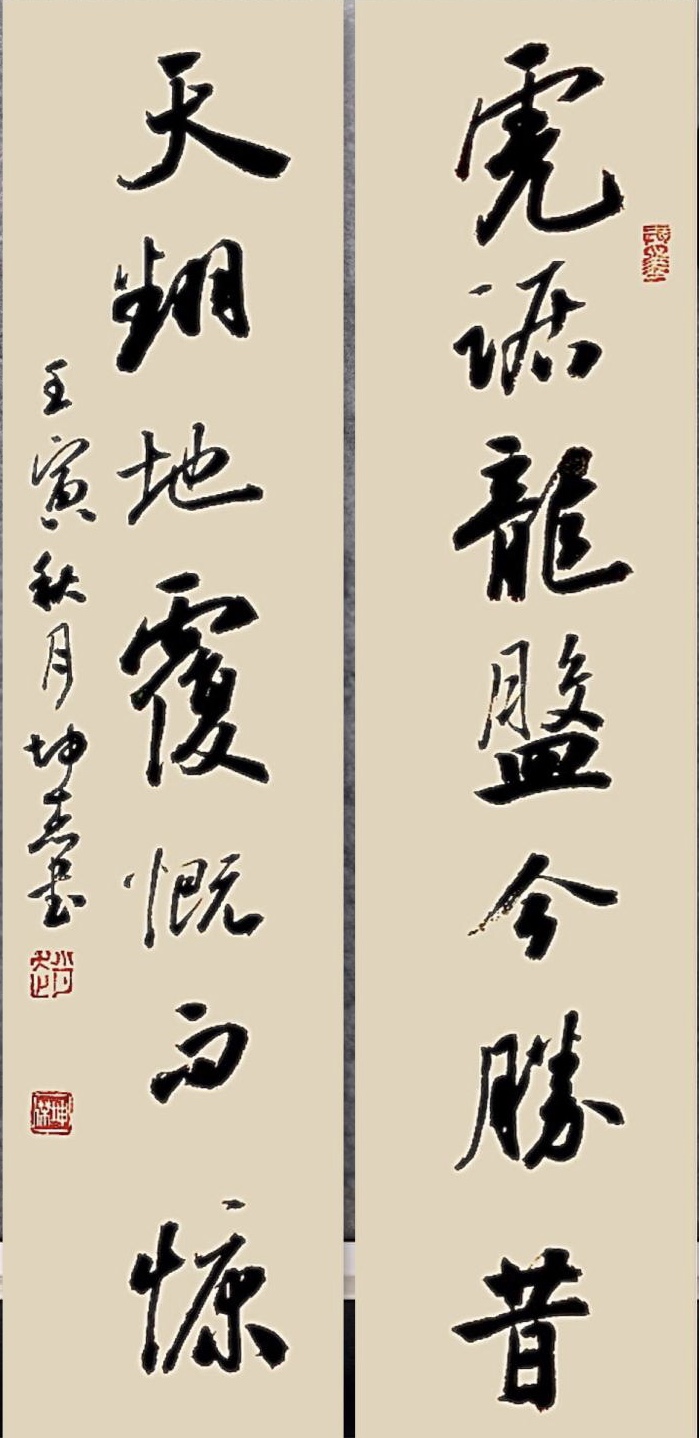 虎踞龍盤今勝昔
天翻地覆慨而慷
壬寅秋月坤書